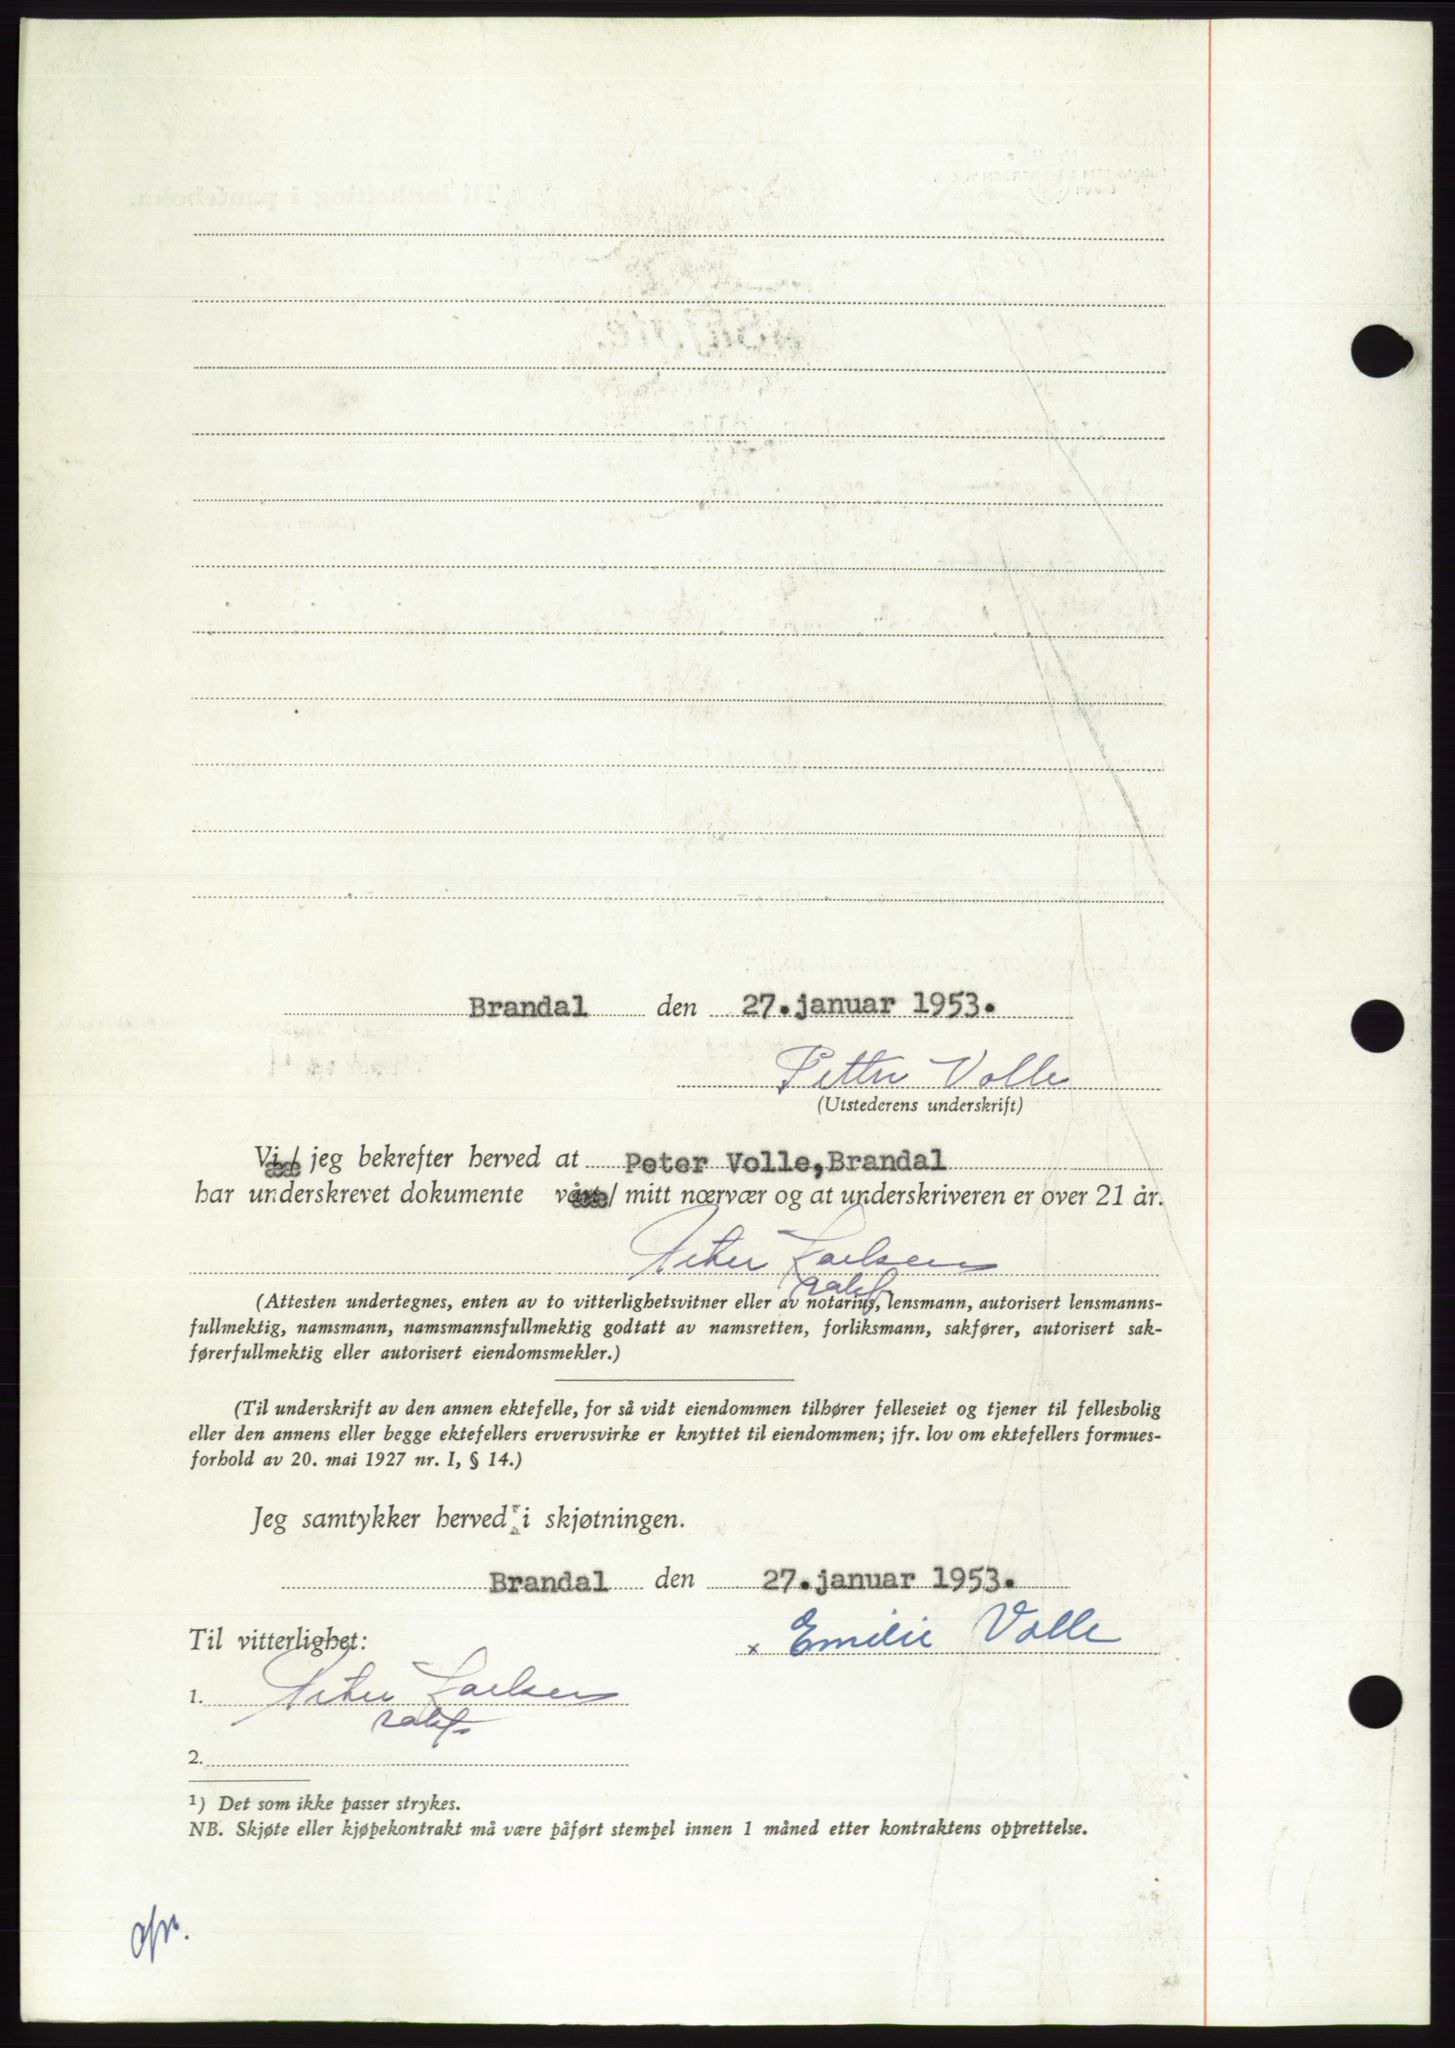 Brandal den 27. januar 1953.
Petter Volle
(Utstederens underskrift)
Vi / jeg bekrefter herved at Peter Volle, Brandal
har underskrevet dokumente våæ / mitt nærvær og at underskriveren er over 21 år.
Peter Karlsen
(Attesten undertegnes, enten av to vitterlighetsvitner eller av notarius, lensmann, autorisert lensmanns-
fullmektig, namsmann, namsmannsfullmektig godtatt av namsretten, forliksmann, sakfører, autorisert sak-
førerfullmektig eller autorisert eiendomsmekler.)
(Til underskrift av den annen ektefelle, for så vidt eiendommen tilhører felleseiet og tjener til fellesbolig
eller den annens eller begge ektefellers ervervsvirke er knyttet til eiendommen; jfr. lov om ektefellers formues-
forhold av 20. mai 1927 nr. I, § 14.)
Jeg samtykker herved i skjøtningen.
Brandal den 27. januar 1953.
Til vitterlighet: x Emilie Volle
1. Peter Karlsen
2.
1) Det som ikke passer strykes.
NB. Skjøte eller kjøpekontrakt må være påført stempel innen 1 måned etter kontraktens opprettelse.